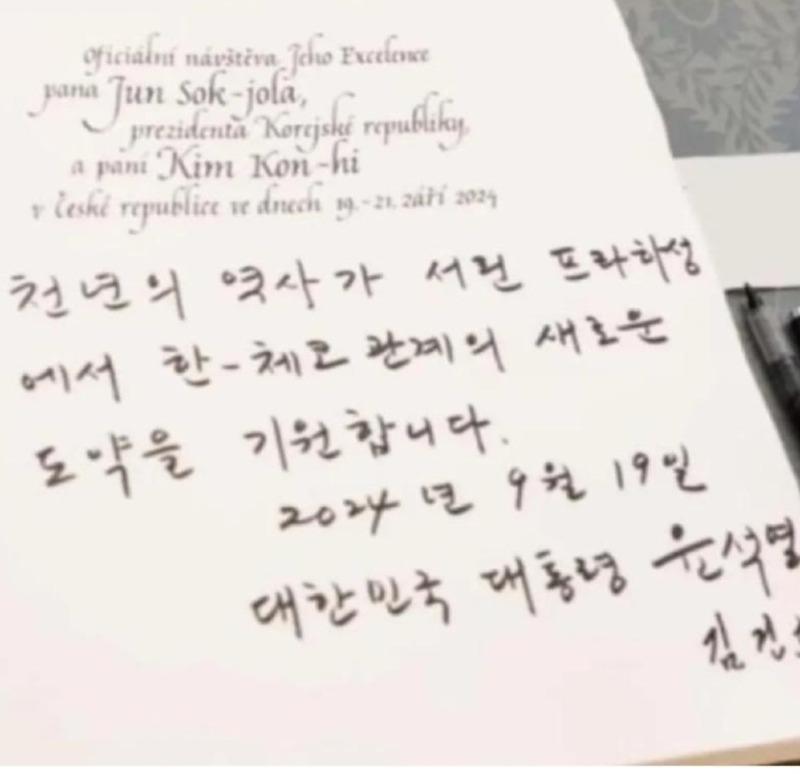 Oficiální návštěva Jeho Excelence
pana Jun Sok-jola,
prezidenta Korejské republiky,
a paní Kim Kon-hi
v České republice ve dnech 19.-21. září 2024
천년의 역사가 서린 프라하성
에서 한-체코 관계의 새로운
도약을 기원합니다.
2024년 9월 19일
대한민국 대통령 윤석열
김건